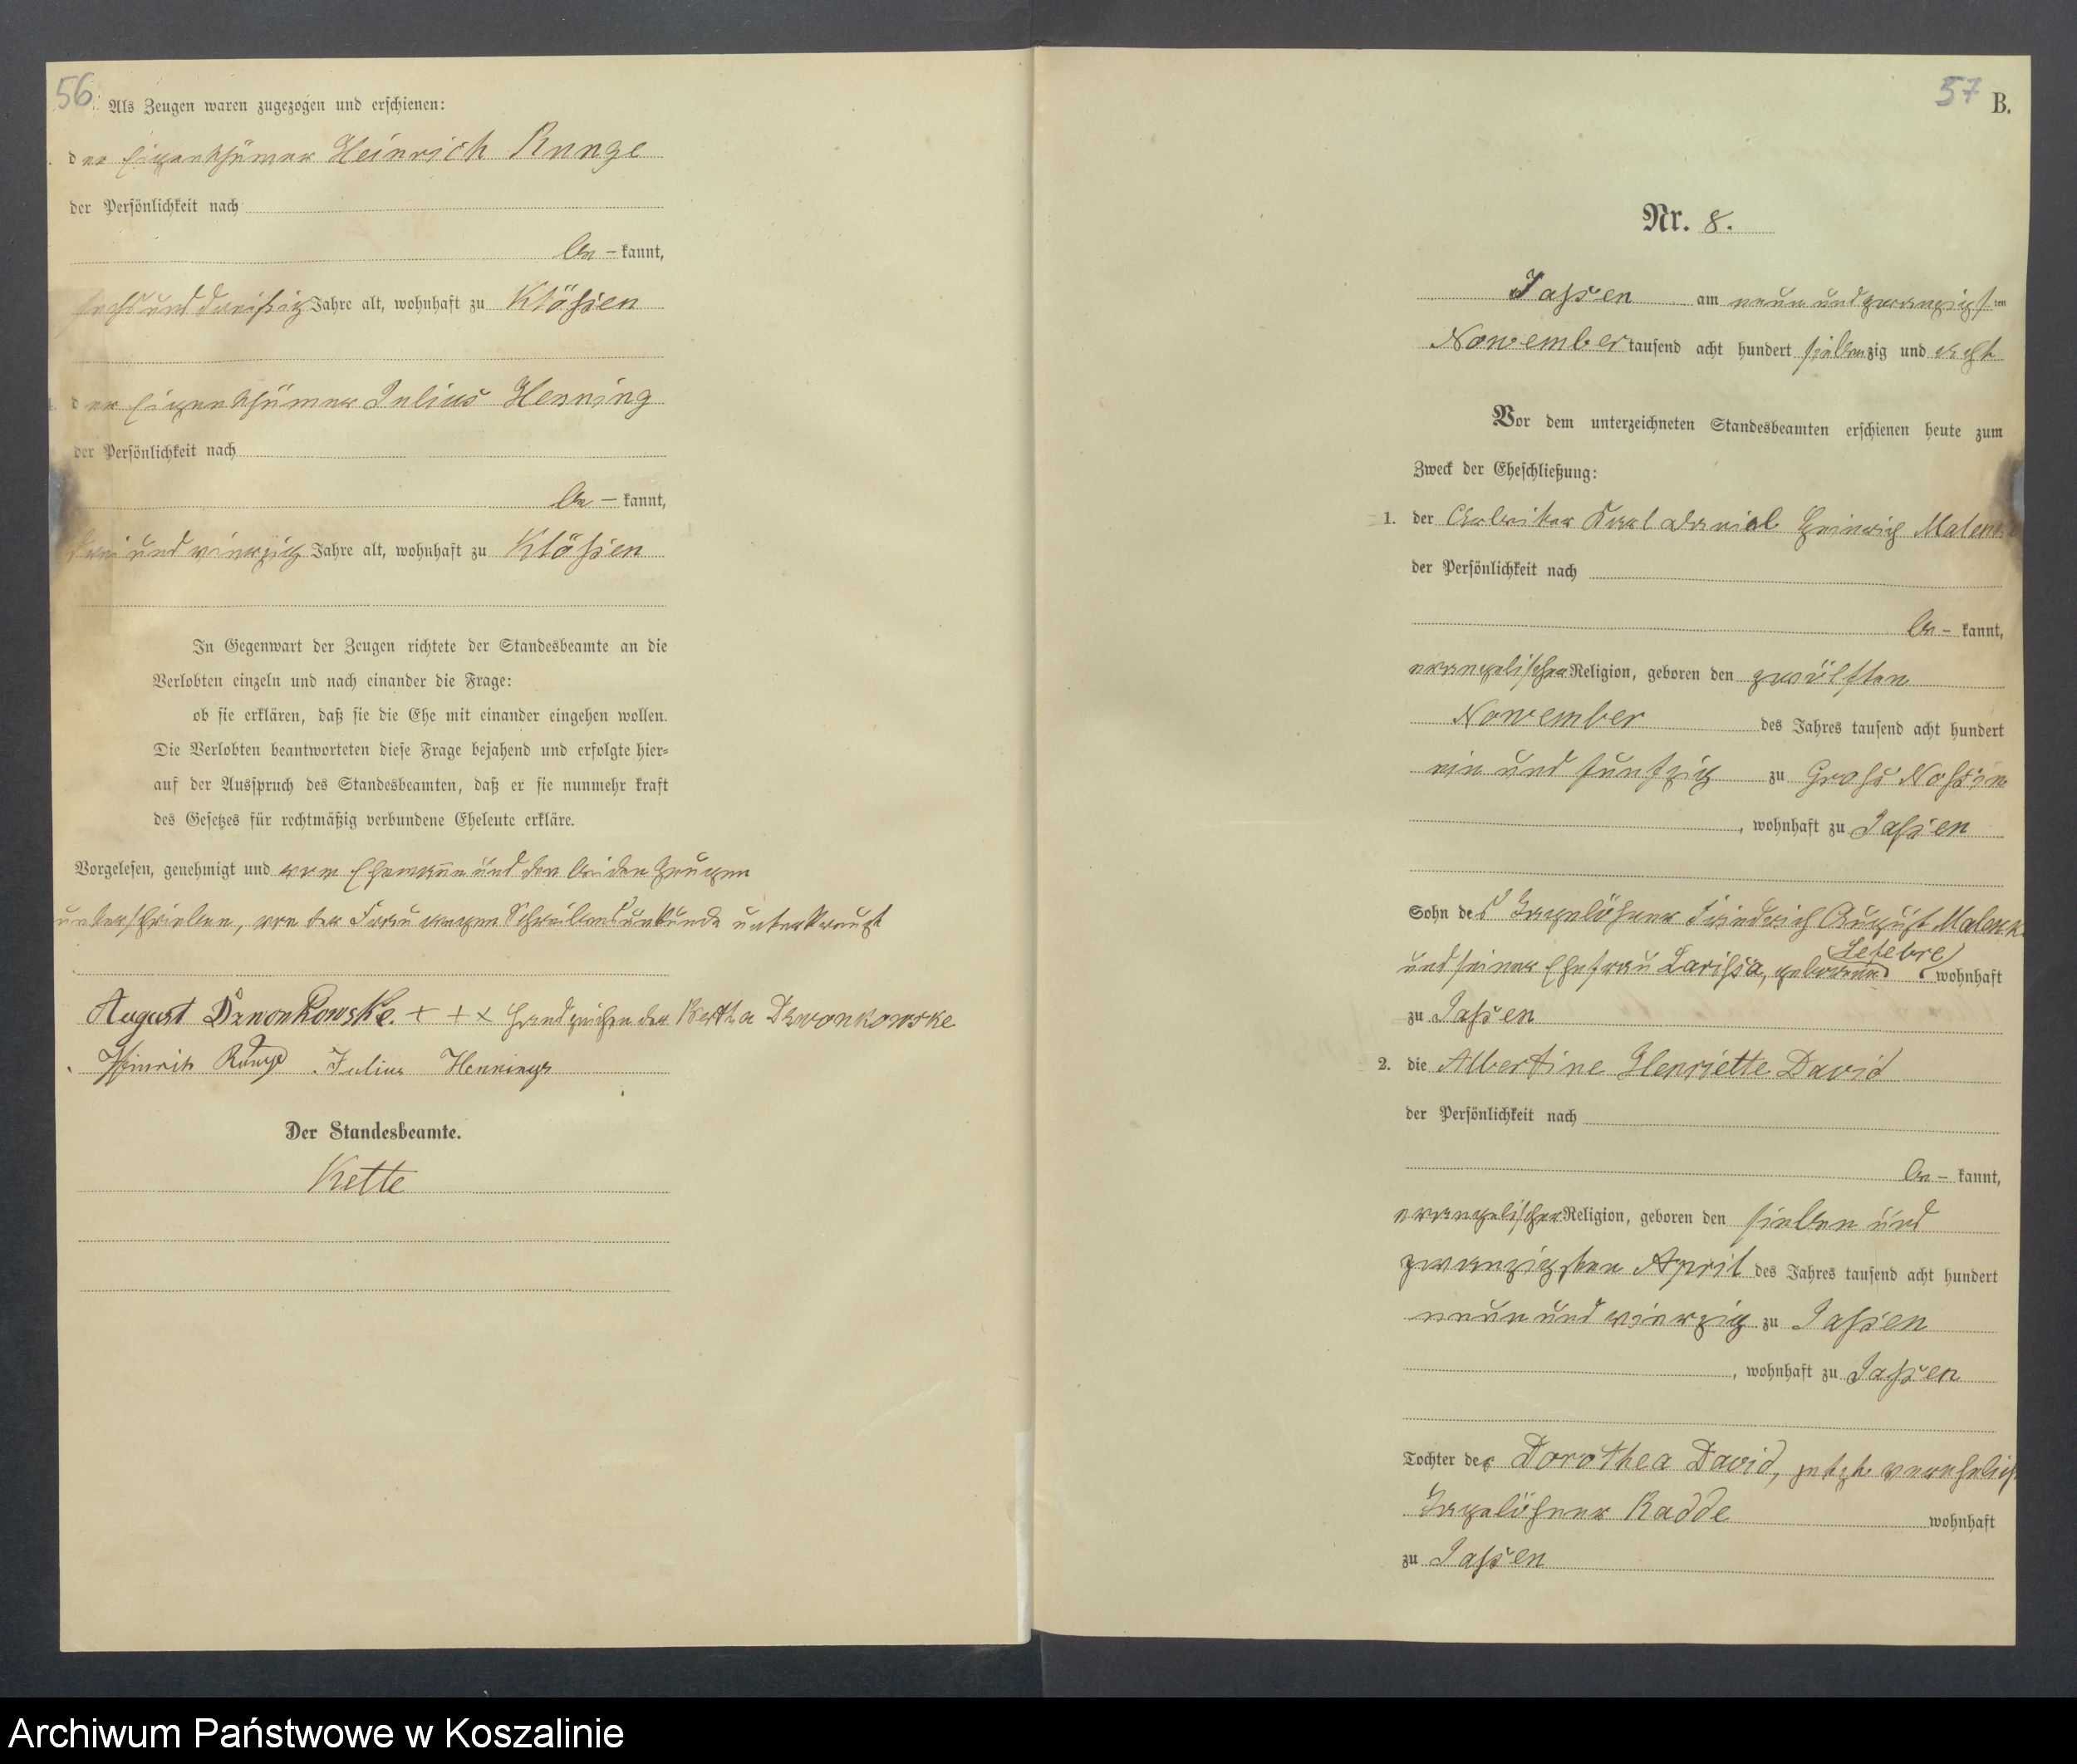 56
Als Zeugen waren zugezogen und erschienen:
der Eigenthümer Heinrich Runge
der Persönlichkeit nach
be- kannt,
sechs und dreißig Jahre alt, wohnhaft zu Klößen
der Eigenthümer Julius Henning
der Persönlichkeit nach
be- kannt,
und vierzig Jahre alt, wohnhaft zu Klößen
In Gegenwart der Zeugen richtete der Standesbeamte an die
Verlobten einzeln und nach einander die Frage:
ob sie erklären, daß sie die Ehe mit einander eingehen wollen.
Die Verlobten beantworteten diese Frage bejahend und erfolgte hier-
auf der Ausspruch des Standesbeamten, daß er sie nunmehr kraft
des Gesetzes für rechtmäßig verbundene Eheleute erkläre.
Vorgelesen, genehmigt und vom Ehemann und den beiden Zeugen
unterschrieben, von der Frau wegen Schreibensunkunde unterkreuzt
August Dzwonkowske. + + x Handzeichen der Bertha Dzwonkowske
Heinrich Runge Julius Henning
Der Standesbeamte.
Kette
57
B.
Nr. 8.
Jassen am neun und zwanzigsten
November tausend acht hundert siebenzig und acht
Vor dem unterzeichneten Standesbeamten erschienen heute zum
Zweck der Eheschließung:
1. der Arbeiter Karl Daniel Heinrich
der Persönlichkeit nach
be- kannt,
evangelischer Religion, geboren den zwölften
November des Jahres tausend acht hundert
ein und funfzig zu Groß Nossin
, wohnhaft zu Jassen
Sohn des Tagelöhner Friedrich August
und seiner Ehefrau geborene Lefebre wohnhaft
zu Jassen
2. die Albertine Henriette David
der Persönlichkeit nach
be- kannt,
evangelischer Religion, geboren den sieben und
zwanzigsten April des Jahres tausend acht hundert
neun und vierzig zu Jassen
, wohnhaft zu Jassen
Tochter der Dorothea David, jetzt verehelicht
Tagelöhner Radde wohnhaft
zu Jassen
Archiwum Państwowe w Koszalinie